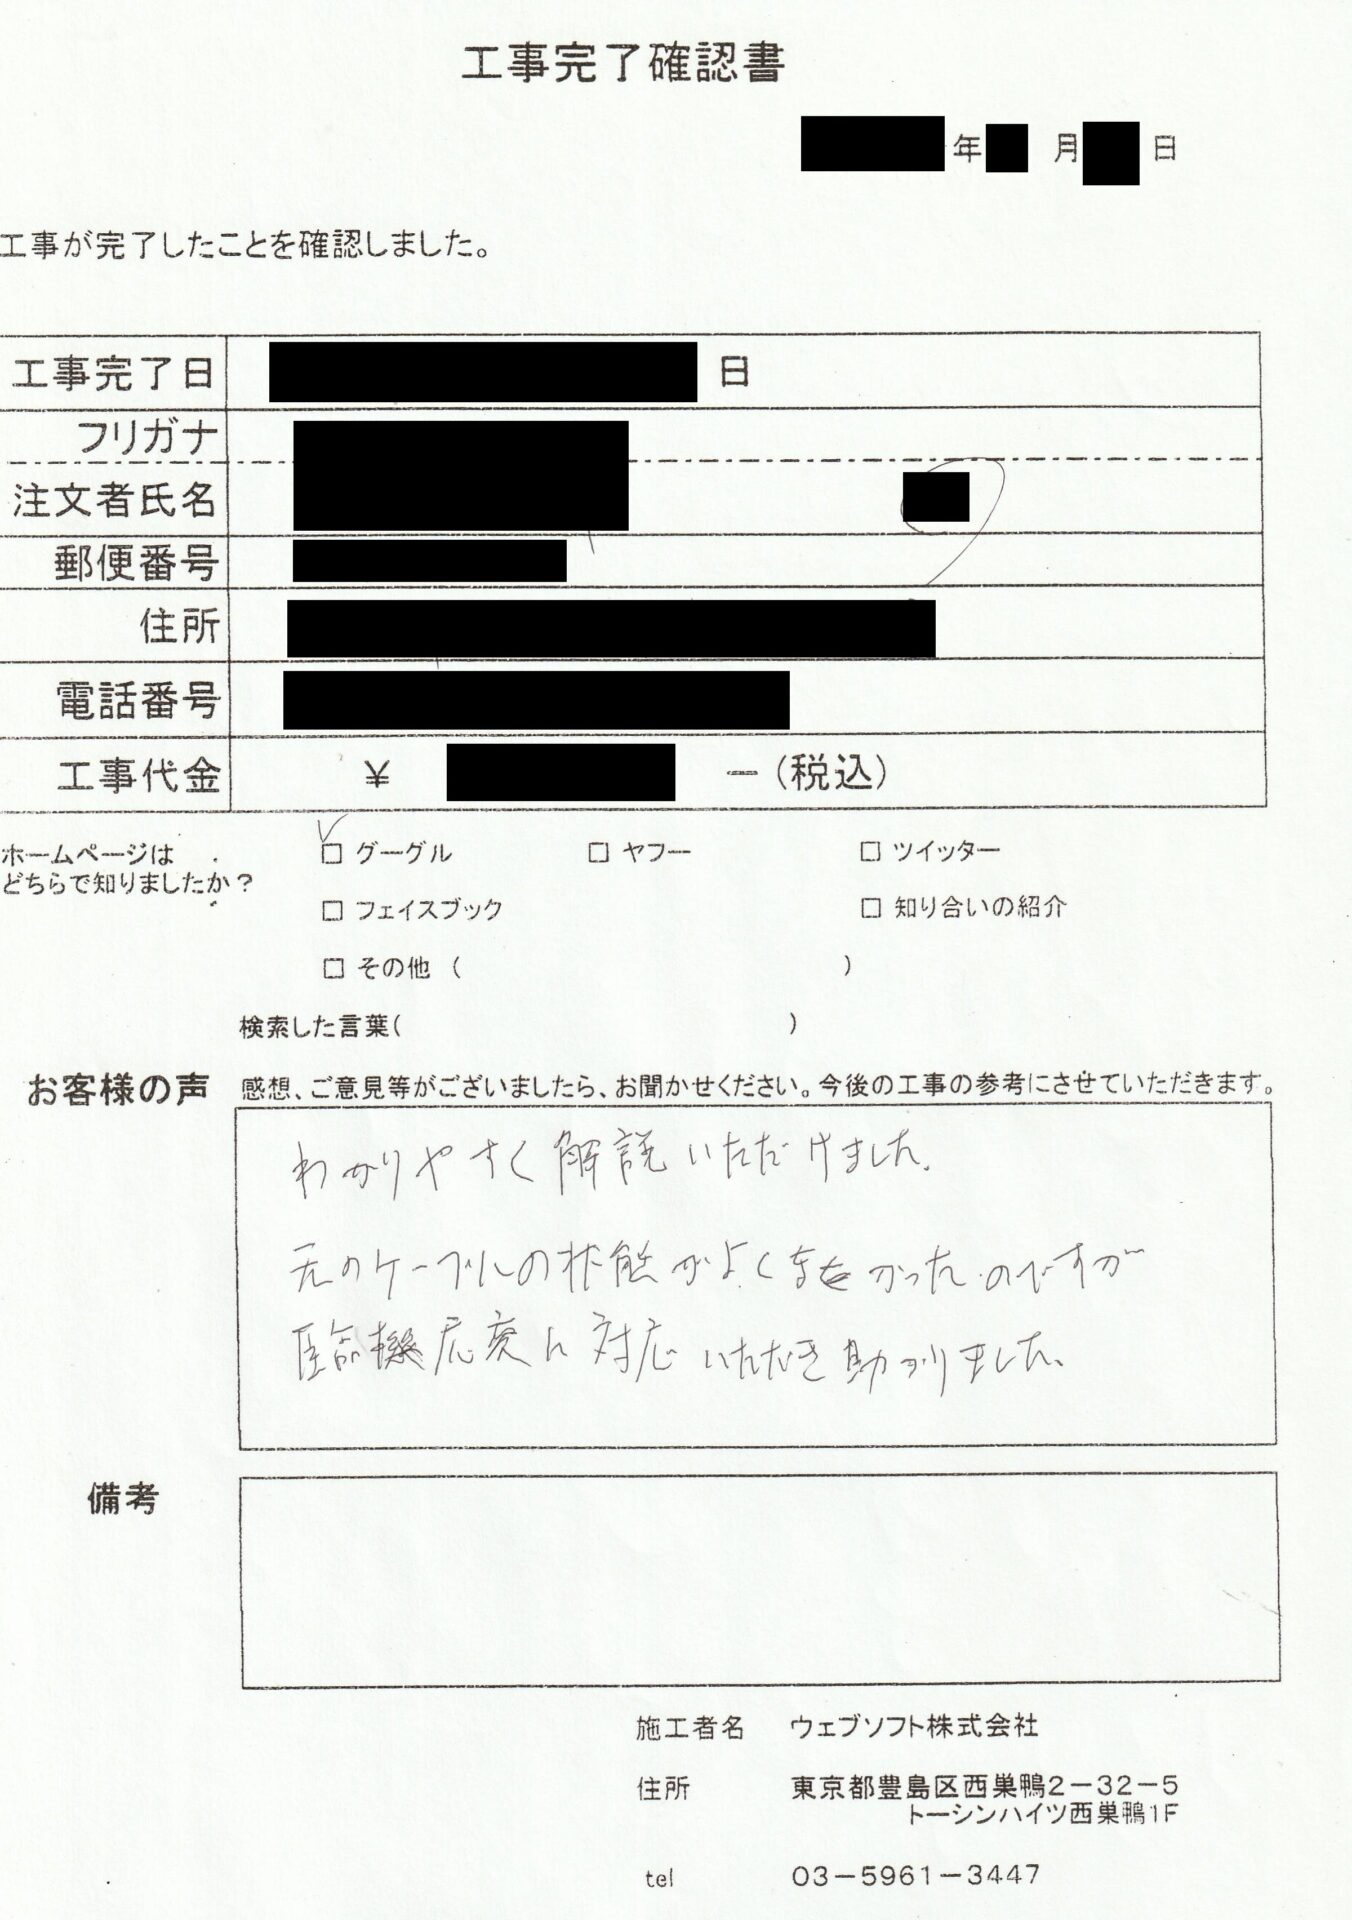 工事完了確認書
年 月 日
工事が完了したことを確認しました。
工事完了日 日
フリガナ
注文者氏名
郵便番号
住所
電話番号
工事代金 ¥ ー(税込)
ホームページは
どちらで知りましたか?
□ グーグル □ ヤフー □ ツイッター
□ フェイスブック □ 知り合いの紹介
□ その他 ( )
検索した言葉( )
お客様の声 感想、ご意見等がございましたら、お聞かせください。今後の工事の参考にさせていただきます。
わかりやすく解説いただけました。
元のケーブルの状態がよくなかったのですが
臨機応変に対応いただき助かりました。
備考
施工者名 ウェブソフト株式会社
住所 東京都豊島区西巣鴨2−32−5
トーシンハイツ西巣鴨1F
tel 03−5961−3447